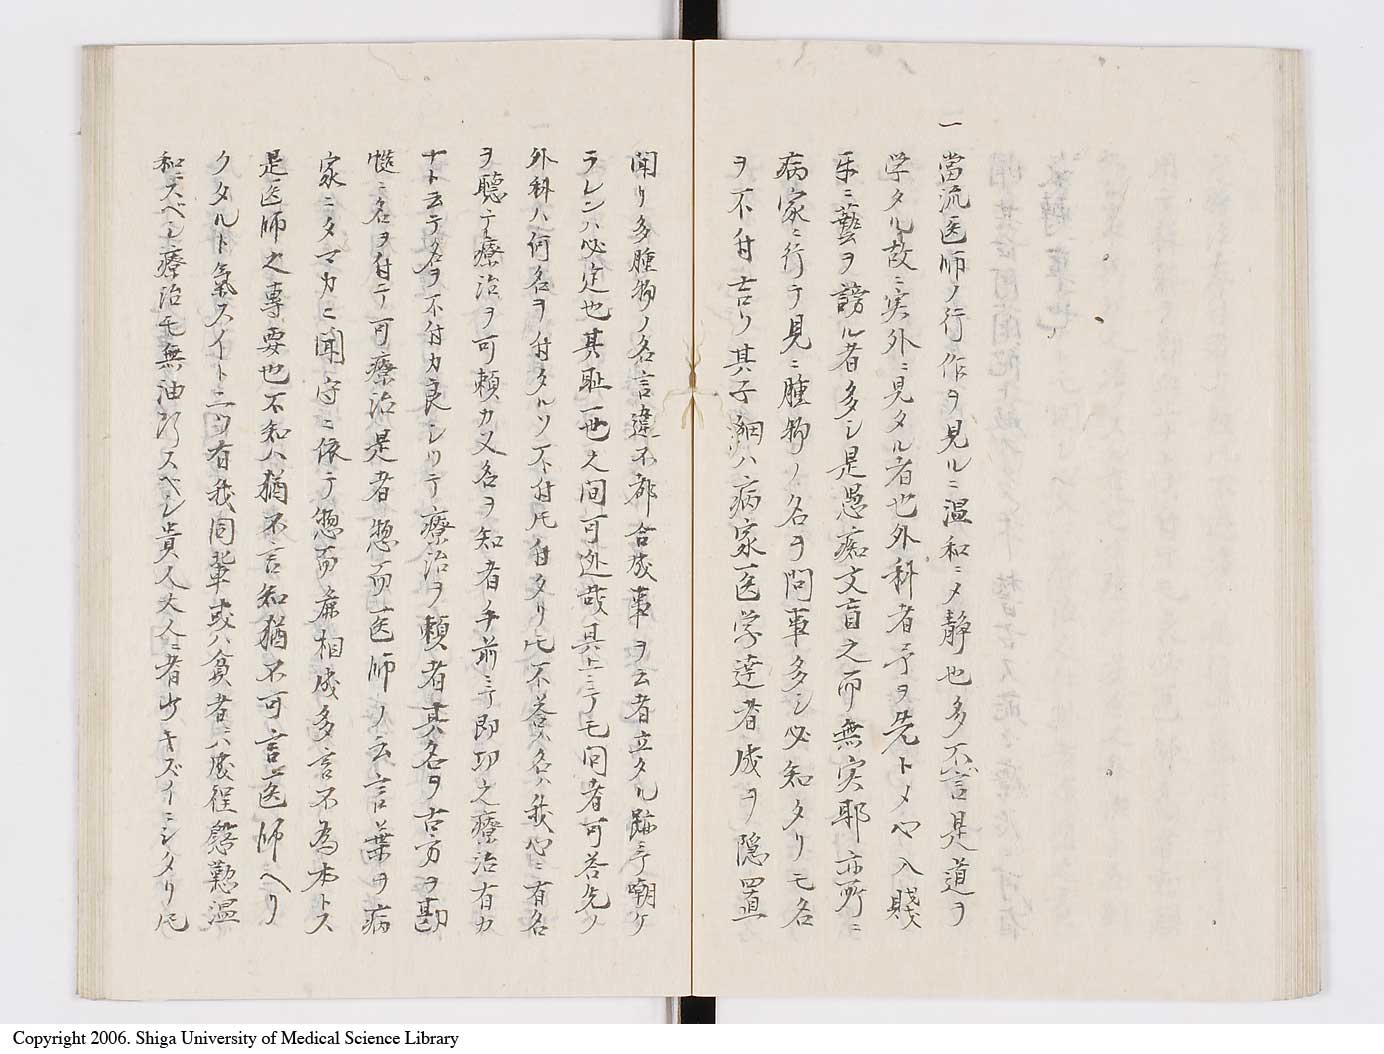 一 當流医師ノ行作ヲ見ルニ温和ニメ静也多不言是道ヲ
学タル故ニ実外ニ見タル者也外科者予ヲ先トメ心入賤
ニ藝ヲ謗ル者多シ是愚痴文盲之而無実耶亦所ニ
病家ニ行テ見ニ腫物ノ名ヲ問事多シ必知タリモ名
ヲ不付言リ其子細ハ病家医学達者成ヲ隠置
聞リ多腫物ノ名言違不都合成事ヲ云者立タル跡ニテ嘲ケ
ラレンハ必定也其耻一世之間可逃哉其上ニテモ問者可答先ノ
外科ハ何名ヲ付タルソ不付凡付タリ凡不答ハ名ハ我心ニ有名
ヲ聴テ療治ヲ可頼カ又名ヲ知者手前ニテ即功之療治有カ
ナト云テ名ヲ不付カ良シリテ療治ヲ頼者其名ヲ古方ヲ勘
ニ名ヲ付テ可療治是者惣而医師ノ云言葉ヲ病
家ニタマカニ聞守ニ依テ惣而麁相成多言不為本トス
是医師之専要也不知ハ猶不言知猶不可言医師ヘリ
クタルト氣スイト二ツ有我同輩或ハ貧者ニハ成程慇懃温
和ニスベシ療治モ無油断スベシ貴人大人ニ者少キズイニシタリ凡
Copyright 2006. Shiga University of Medical Science Library